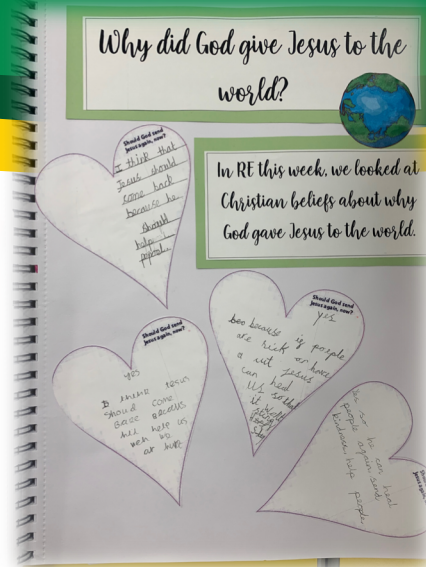 Why did God give Jesus to the
world?
In RE this week, we looked at
Christian beliefs about why
God gave Jesus to the world.
Should God send
Jesus again, now?
I think that
Jesus should
come back
because he
should
help
Should God send
Jesus again, now?
yes
because if people
are sick or have
a cut Jesus
can heal
us so that
it
Should God send
Jesus again, now?
yes
I think Jesus
should come
help us
we
so he can heal
people again send
kindness, help people